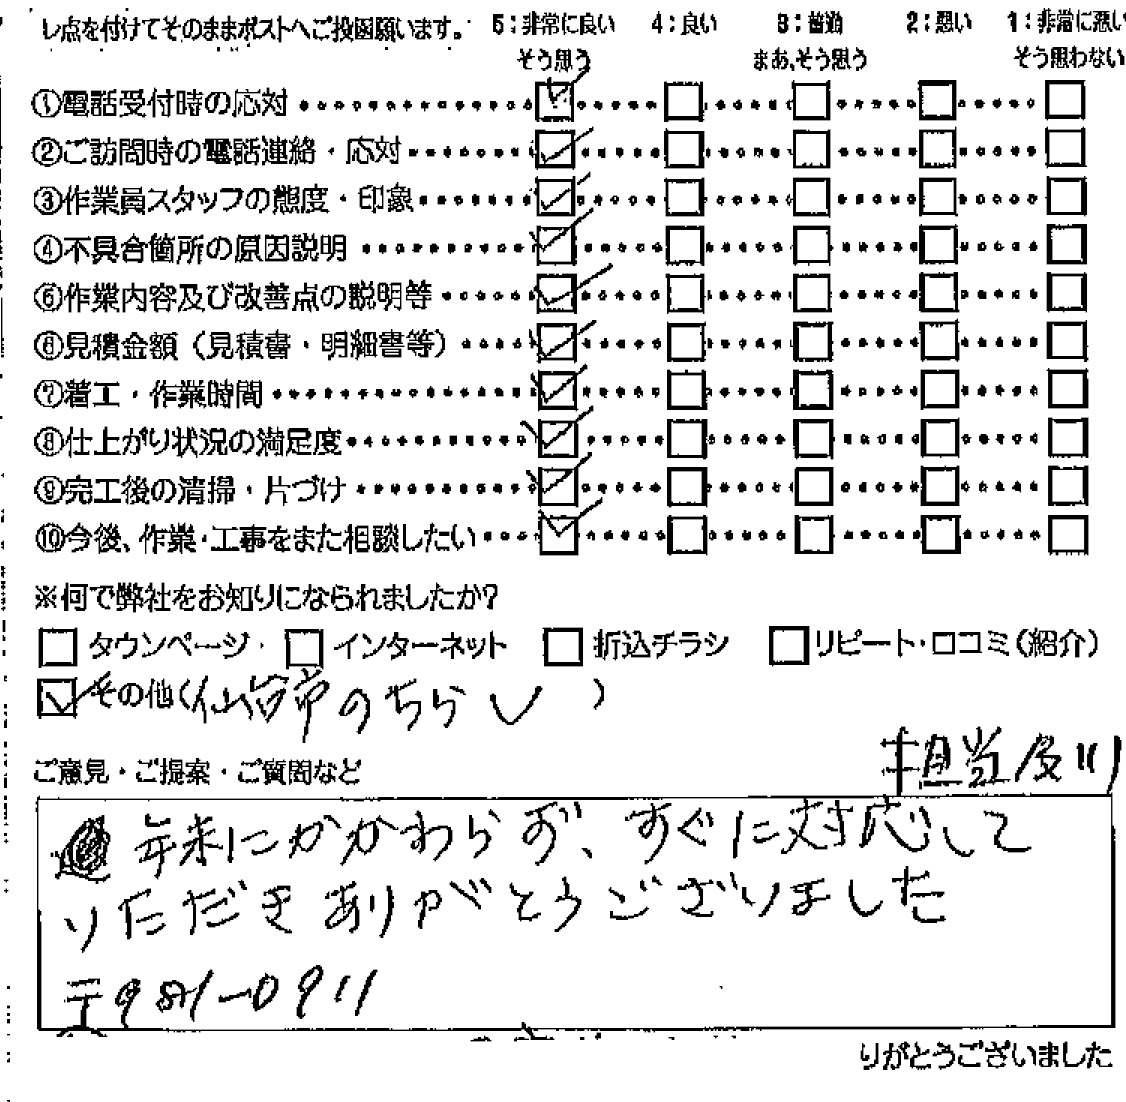 レ点を付けてそのままポストへご投函願います。 5:非常に良い 4:良い 3:普通 2:悪い 1:非常に悪い
そう思う まあ、そう思う そう思わない
①電話受付時の応対
②ご訪問時の電話連絡・応対
③作業員スタッフの態度・印象
④不具合箇所の原因説明
⑤作業内容及び改善点の説明等
⑥見積金額(見積書・明細書等)
⑦着工・作業時間
⑧仕上がり状況の満足度
⑨完工後の清掃・片づけ
⑩今後、作業・工事をまた相談したい
※何で弊社をお知りになられましたか?
タウンページ・ インターネット 折込チラシ リピート・口コミ(紹介)
その他(仙台市のちらし)
担当及川
ご意見・ご提案・ご質問など
年末にかかわらず、すぐに対応して
いただきありがとうございました
〒981-0911
りがとうございました